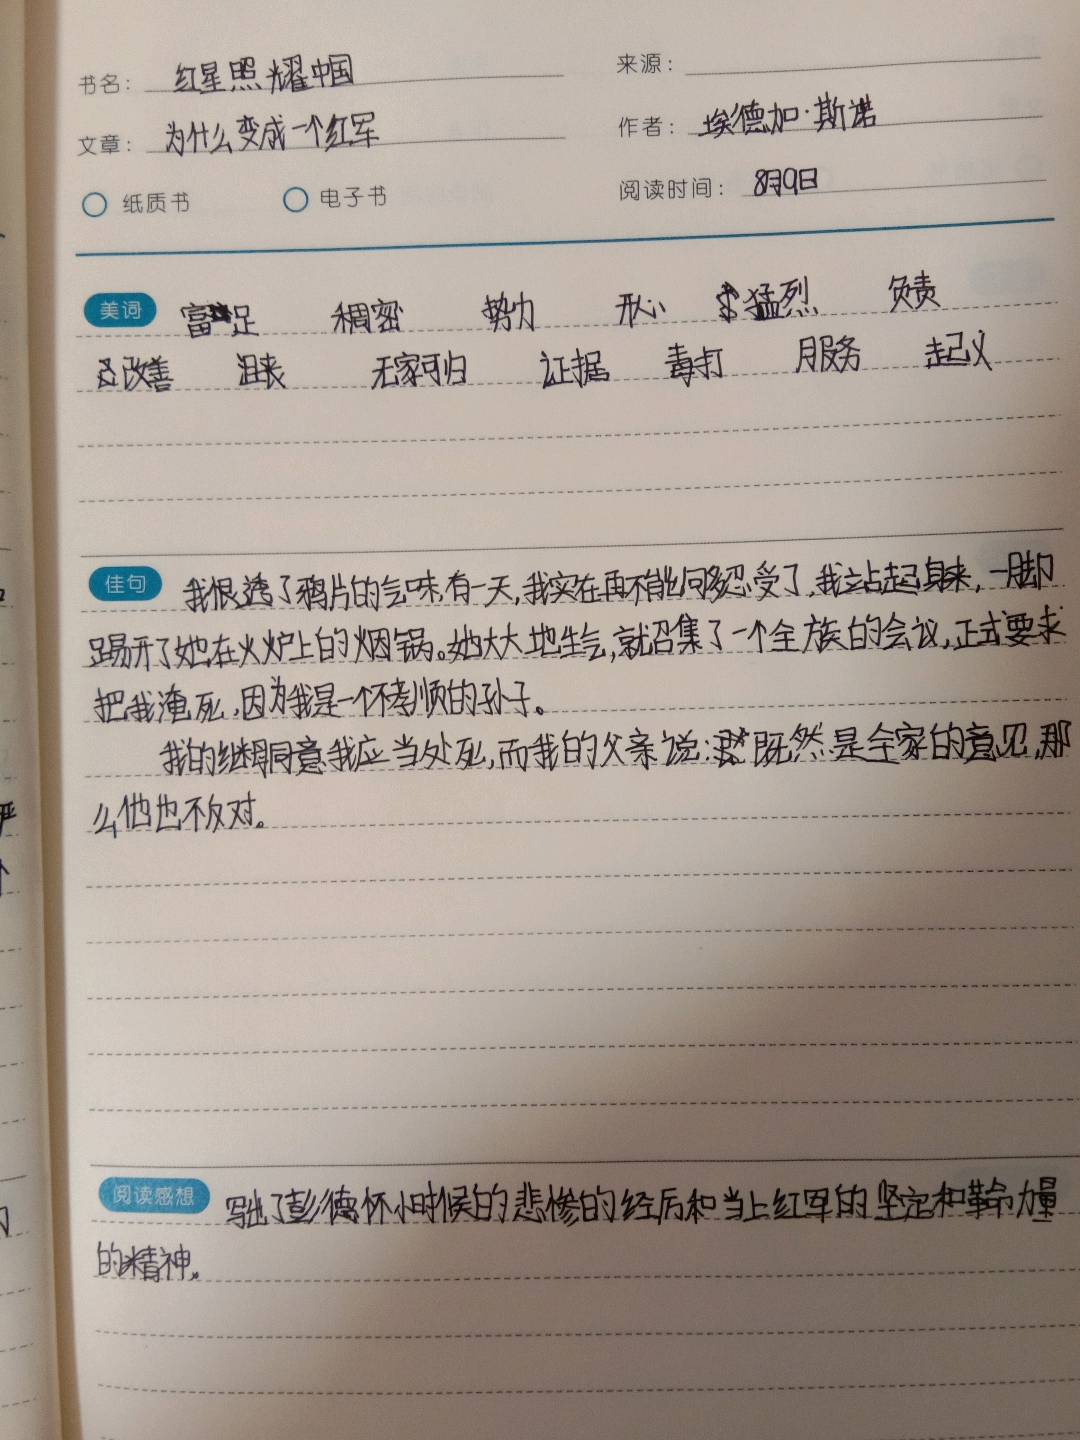 书名： 红星照耀中国 来源：
文章： 为什么变成一个红军 作者： 埃德加·斯诺
纸质书 电子书 阅读时间： 8月9日
美词 富足 稠密 势力 形心 猛烈 负责
改善 沮丧 无家可归 证据 毒打 服务 起义
佳句 我恨透了鸦片的气味,有一天,我实在再不能够忍受了,我站起身来,一脚
踢开了她在火炉上的烟锅。她大大地生气,就召集了一个全族的会议,正式要求
把我淹死,因为我是一个不孝顺的孙子。
我的继母同意我应当处死,而我的父亲说:既然是全家的意见,那
么他也不反对。
阅读感想 写出了彭德怀小时候的悲惨的经历和当上红军的坚定和革命力量
的精神。